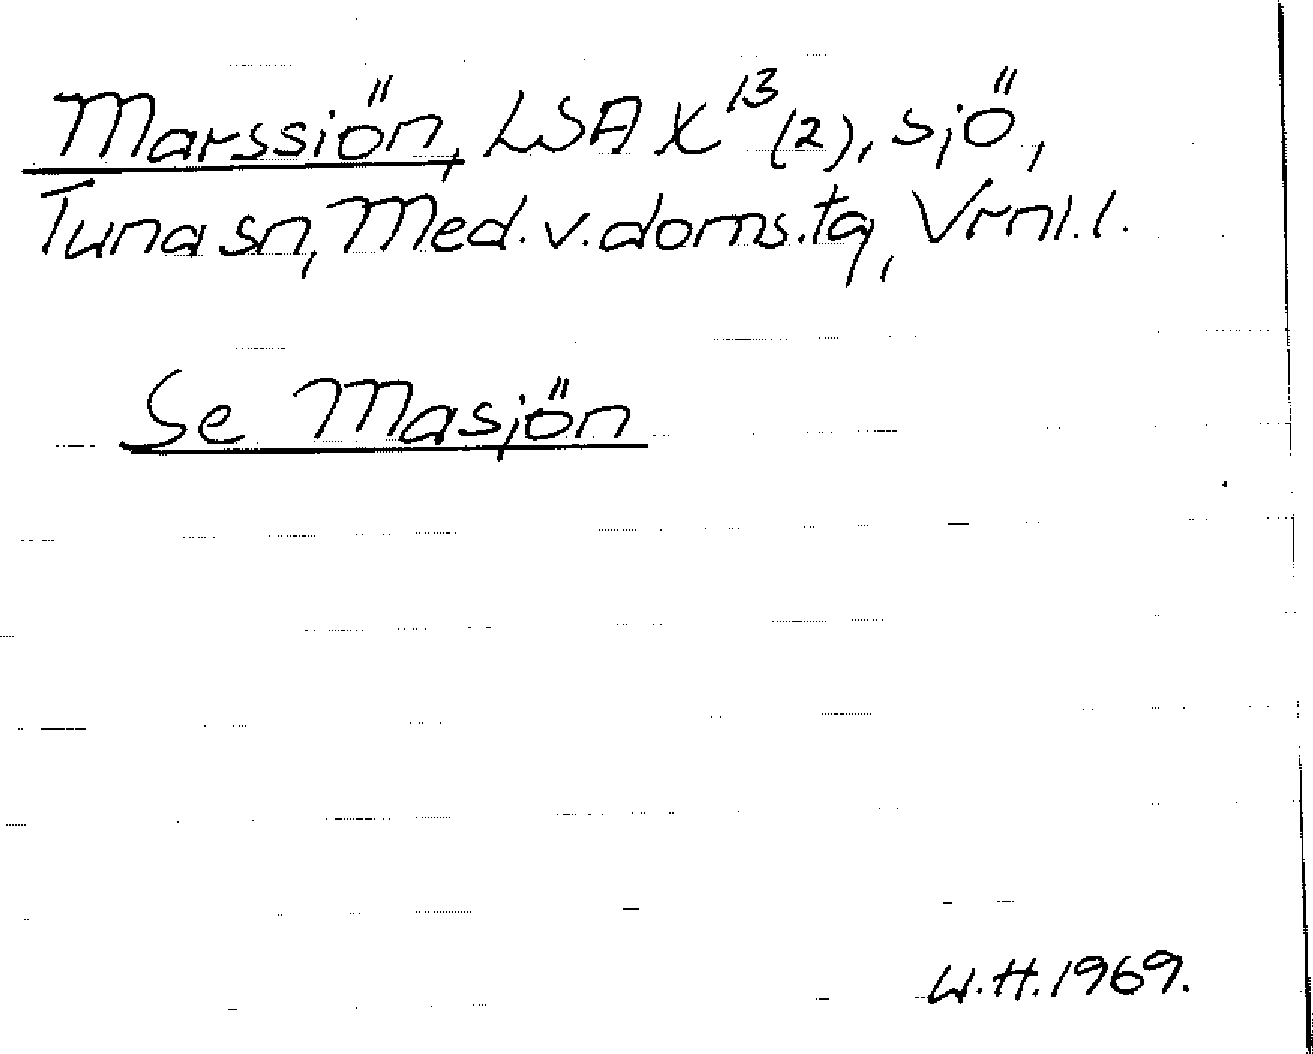 Marssiön, LSA X¹³ (2), sjö,
Tuna sn, Med.v.doms.tg, Vrnl.l.
Se Masjön
W.H.1969.